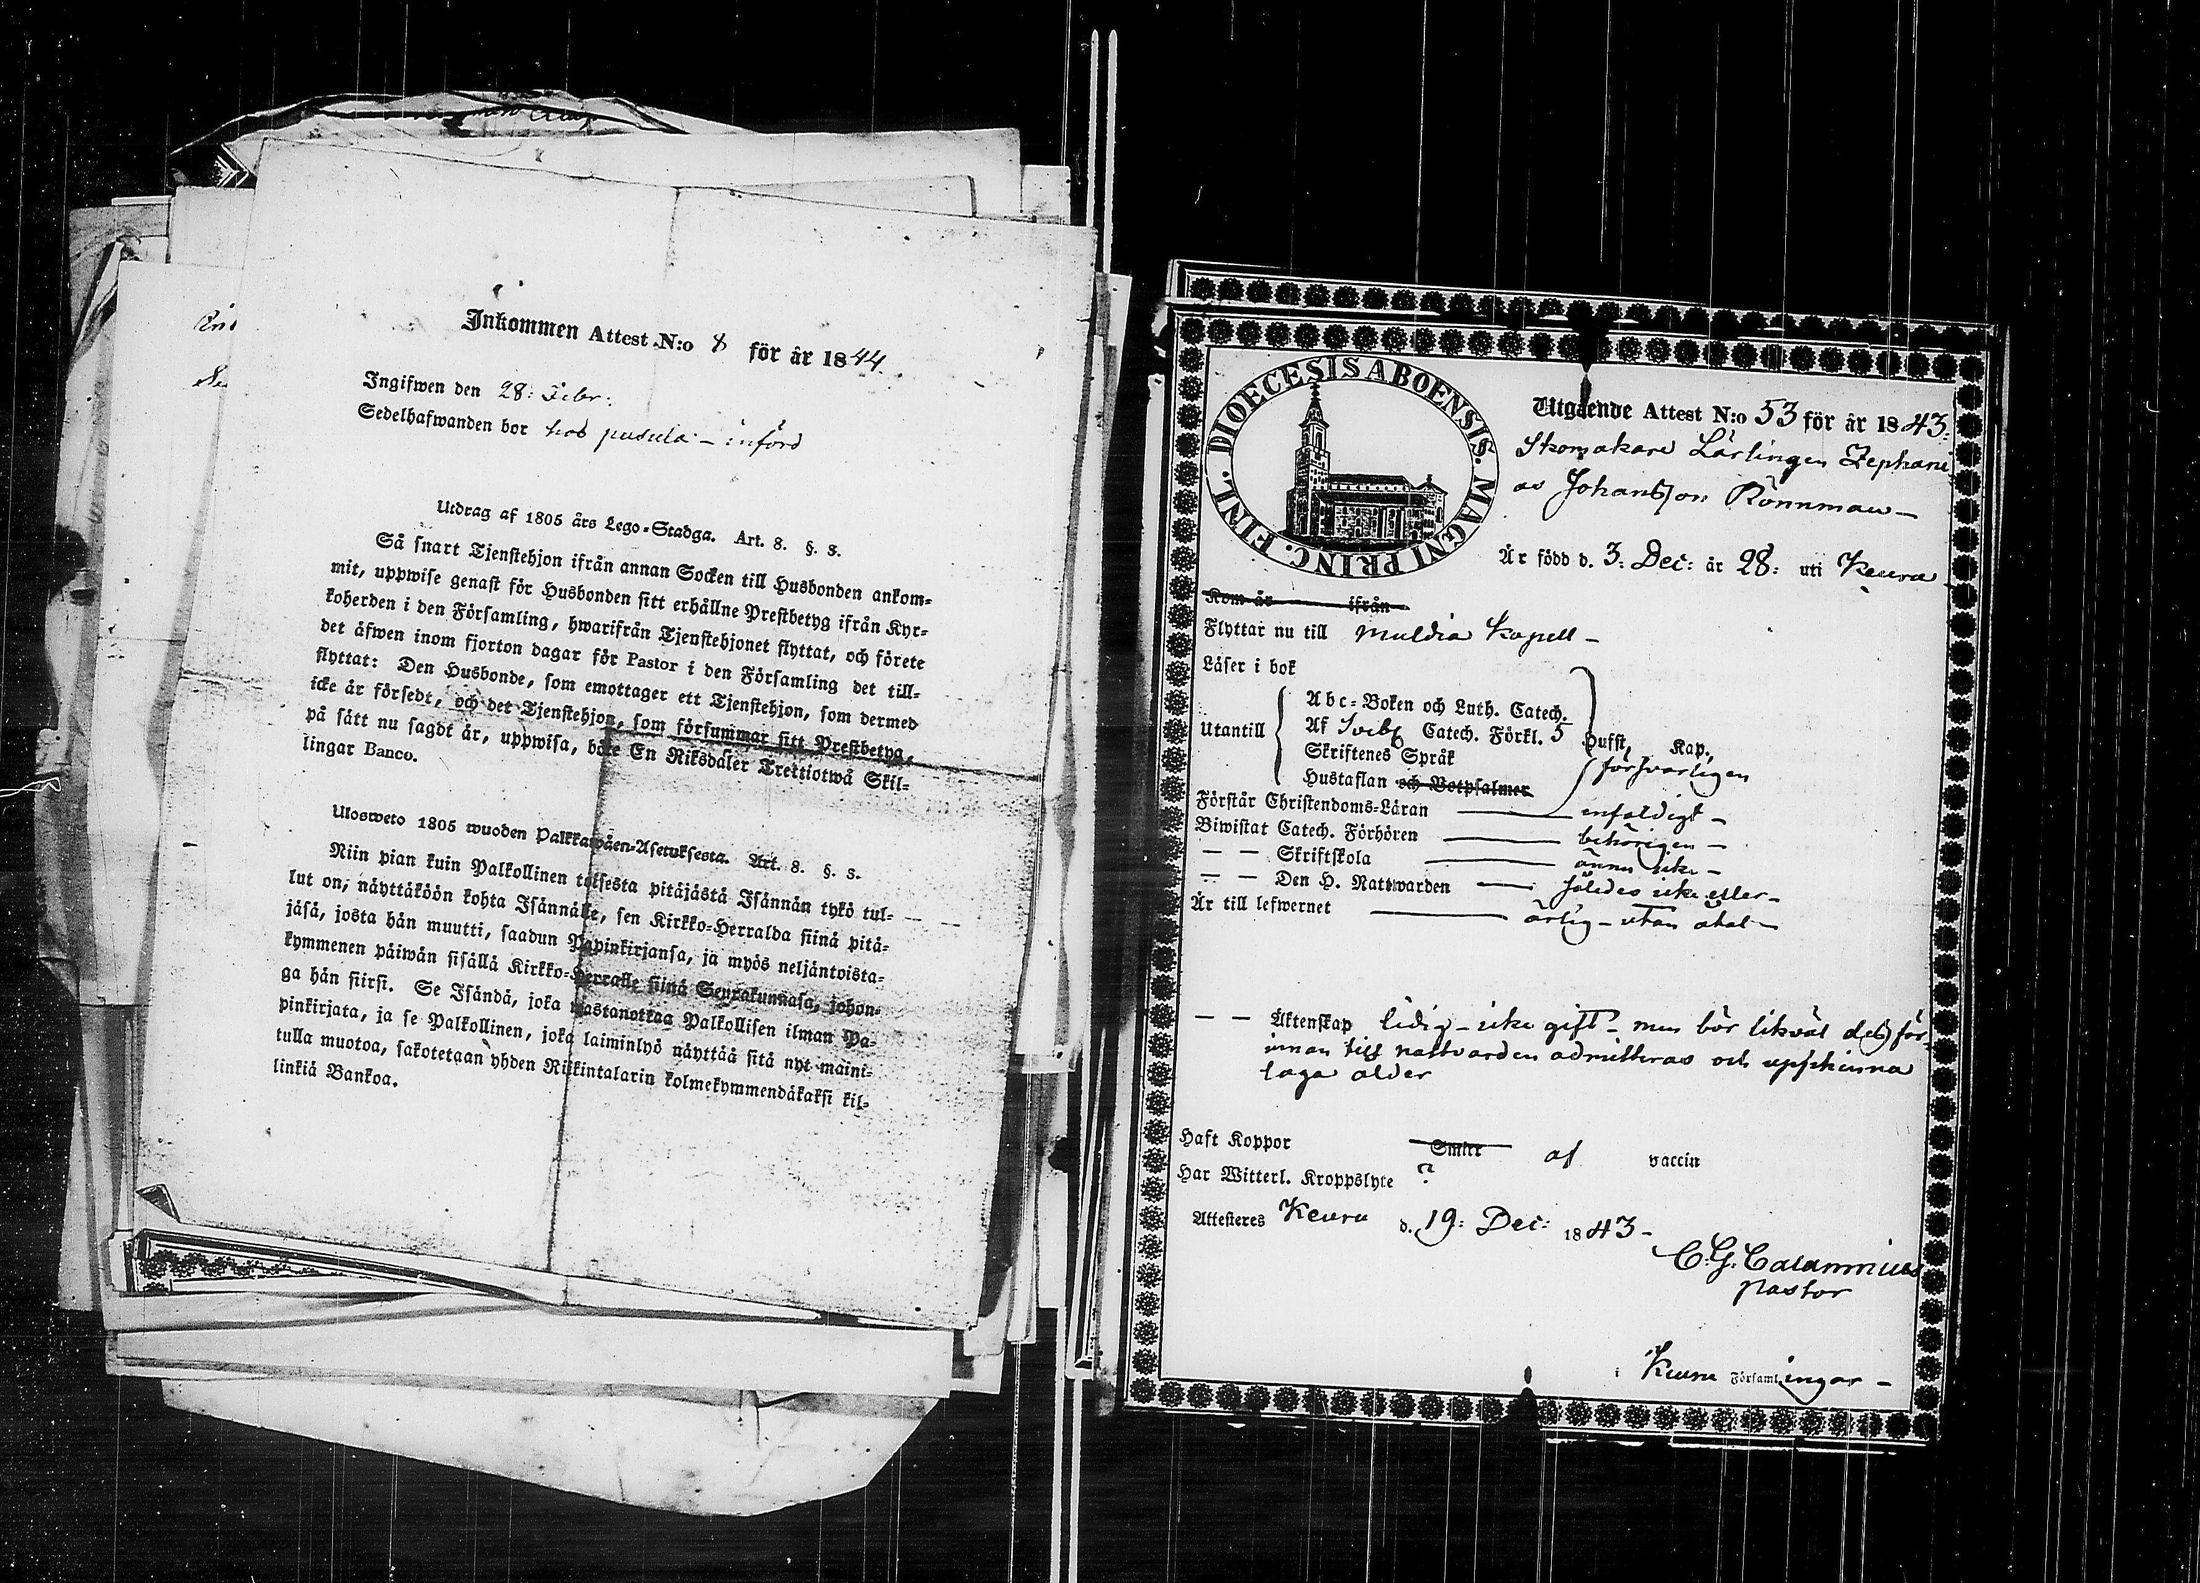 Inkommen Attest N:o 8 för år 1844.
Ingifwen den 28: Febr:
Sedelhafwanden bor hos pusula – införd
Utdrag af 1805 års Lego-Stadga. Art. 8. §. 3.
Så snart Tjenstehjon ifrån annan Socken till Husbonden ankom-
mit, uppwise genast för Husbonden sitt erhållne Prestbetyg ifrån Kyr-
koherden i den Församling, hwarifrån Tjenstehjonet flyttat, och förete
det äfwen inom fjorton dagar för Pastor i den Församling det till-
flyttat: Den Husbonde, som emottager ett Tjenstehjon, som dermed
icke är försedt, och det Tjenstehjon, som försummar sitt Prestbetyg,
på sätt nu sagdt är, uppwisa, böte En Riksdaler Trettiotwå Skil-
lingar Banco.
Ulosweto 1805 wuoden Palkkawäen-Asetuksesta. Art. 8. §. 3.
Niin pian kuin Palkollinen toisesta pitäjästä Isännän tykö tul-
lut on, näyttäköön kohta Isännälle, sen Kirkko-Herralda siinä pitä-
jäsä, josta hän muutti, saadun Papinkirjansa, ja myös neljäntoista-
kymmenen päiwän sisällä Kirkko-Herralle siinä Seurakunnasa, johon-
ga hän siirsi. Se Isändä, joka wastanottaa Palkollisen ilman Pa-
pinkirjata, ja se Palkollinen, joka laiminlyö näyttää sitä nyt maini-
tulla muotoa, sakotetaan yhden Riikintalarin kolmekymmendäkaksi kil-
linkiä Bankoa.
DIOECESIS ABOENSIS. MAGNI PRINC. FINL.
Utgående Attest N:o 53 för år 1843:
Skomakare Lärlingen Zephani
as Johansson Rönnman –
Är född d. 3: Dec: år 28: uti Keuru
Kom år ifrån
Flyttar nu till Muldia Kapell –
Läser i bok
Utantill
Abc-Boken och Luth. Catech.
Af Svebg Catech. Förkl. 5 Hufst. Kap.
Skriftenes Språk försvarligen
Hustaflan och Botpsalmer
Förstår Christendoms-Läran enfaldigt –
Biwistat Catech. Förhören behörigen –
— — Skriftskola ännu icke –
— — Den H. Nattwarden således icke eller –
Är till lefwernet ärlig – utan åtal –
— — Äktenskap ledig – icke gift – men bör likväl för
innan till nattvarden admitteras och upphinna
laga ålder
Haft Koppor Smitt af vaccin
Har Witterl. Kroppslyte ?
Attesteres Keuru d. 19: Dec: 1843 –
C. G. Calamnius
Pastor
i Keuru Församlingar –